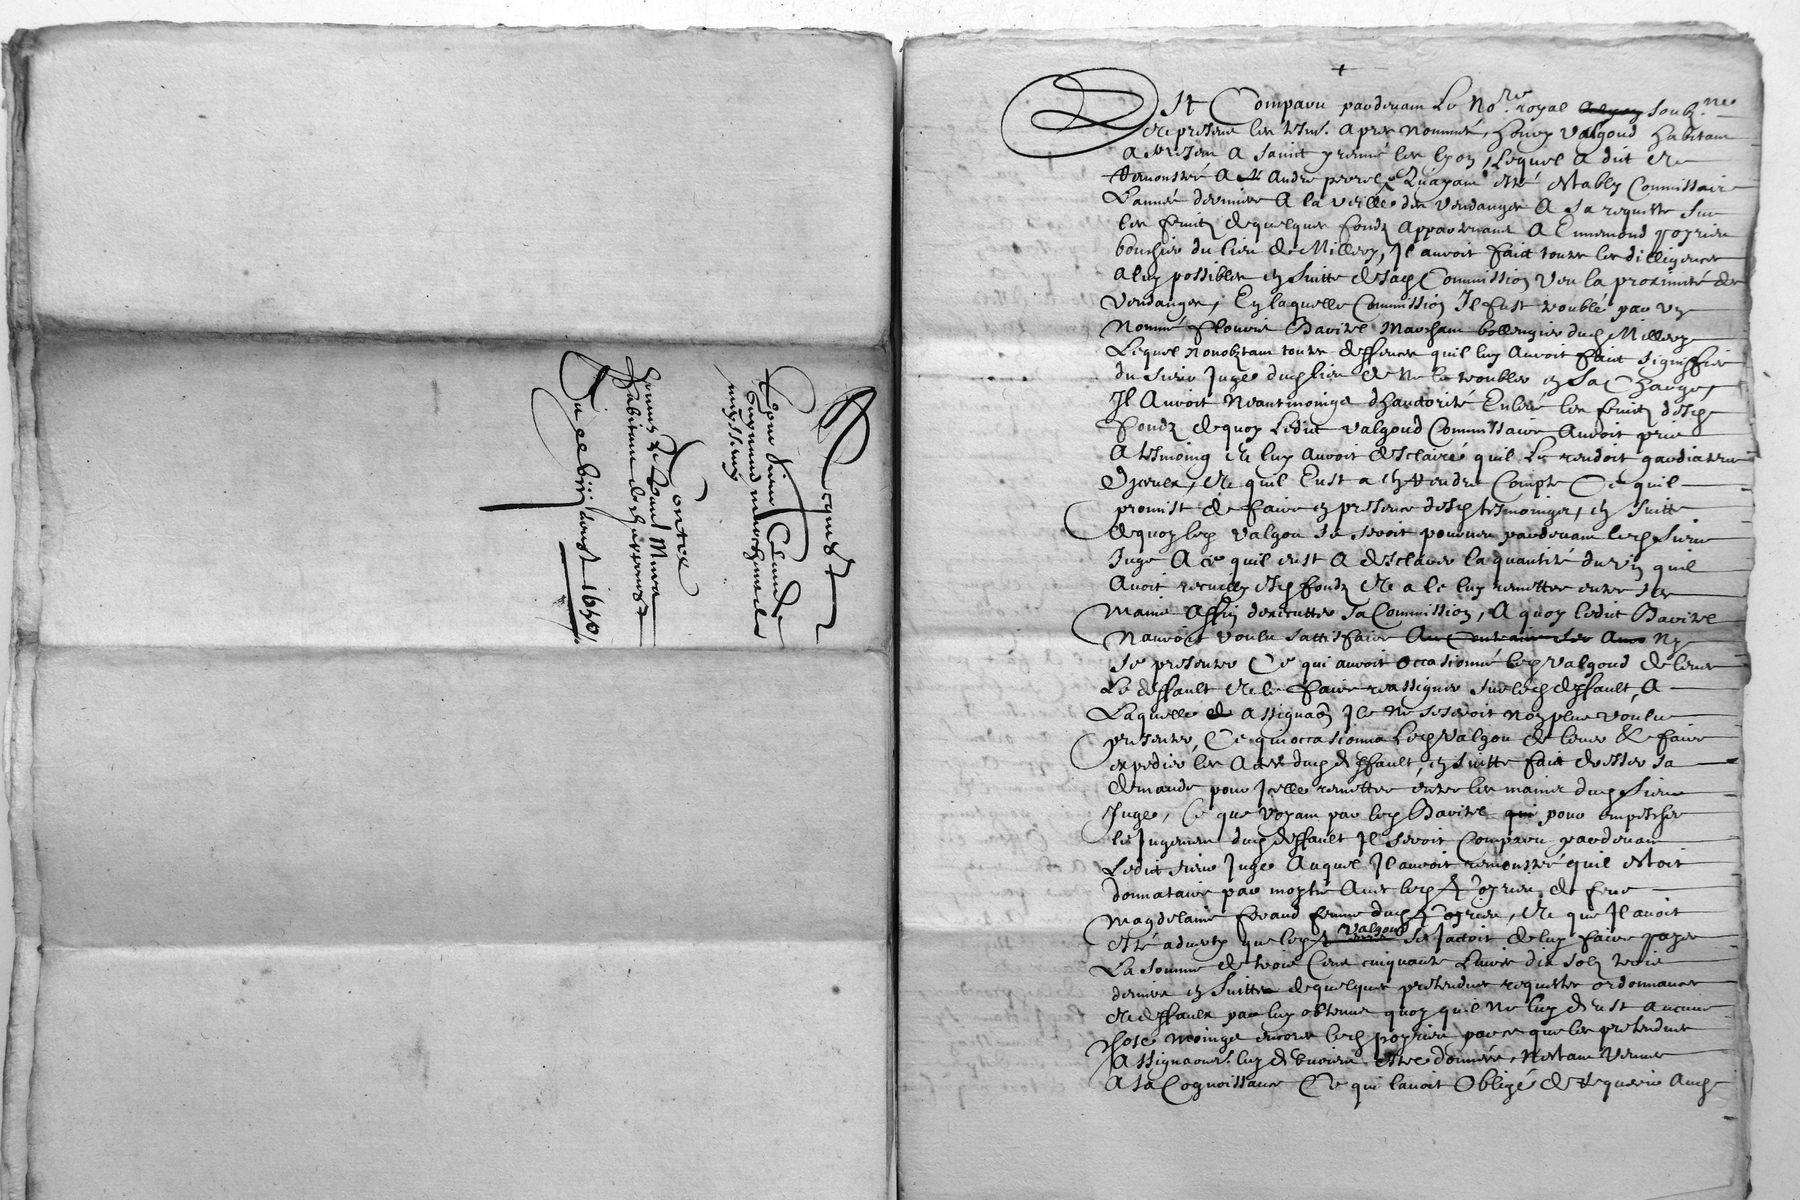 Requeste
Pour Sieur Claude
Guynand marchand de
Contre
Habitant de
Du 28e aoust 1640
Est Comparu pardevant Le No.re royal soubz.né
et presens les tesm. apres nommés, Valgoud habitant
a present a sainct yrenné les lyon, Lequel a dit et
demonstré a André perrel Quayant esté estably Commissaire
L'année derniere a la veille des vendanges a sa requeste sur
les fruitz de quelques fondz appartenans a Ennemond
boucher du lieu de Millery, Il auroit faict toutes les dilligences
a luy possibles en suitte de sad Commission veu la proximité des
vendanges, En laquelle Commission Il fust troublé par un
nommé Flouris Bavitel Marchant bollengier dud Millery
Lequel nonobstant toutes deffences quil luy auroit faict signiffier
du sieur Juge dud lieu de ne le troubler en sa Charge,
Il auroit neantmoings d'hauctorité Enlevé les fruitz desd
fondz de quoy Ledict valgoud Commissaire auroit pris
a tesmoing et luy auroit desclairé quil Le rendoit gardiateur
dyceux, et quil Eust a en rendre Compte Ce quil
promist de faire en presence desd tesmoings, en suitte
dequoy led valgou se seroit pourveu pardevant led sieur
Juge a ce quil eust a desclairer la quantité du vin quil
avoit recuilly esd fondz et a le luy remettre entre ses
mains affin d'executter sa Commission, a quoy ledict Bavitel
n'auroit voulu sattisfaire ny
se presenter Ce qui auroit occasionné led valgoud de lever
Le deffault et le faire reassigner sur led deffault, a
Laquelle assignaon Il ne se seroit non plus voulu
presenter, Ce qui occasionna Led valgou de lever & faire
expedier les actes dud deffault, en suitte faict dresser sa
demande pour Icelle remettre entre les mains dud sieur
Juge, Ce que voyant par led Bavitel pour empescher
le Jugement dud deffault Il seroit Comparu pardevant
Ledict sieur Juge auquel Il auroit remonstré quil estoit
donnataire par moytié avec led de feue
Magdelaine femme dud et que Il avoit
esté adverty que led valgoud se Jactoit de luy faire payer
La somme de trois Cens cinquante Livres dix solz trois
deniers en suitte de quelques pretendues requestes ordonnances
et deffaulx par luy obtenus quoy quil ne luy deust aucune
chose moings encores led parce que les pretendues
assignaons luy debvoient estre données, n'estant venues
a sa Cognoissance Ce qui lavoit Obligé de requerir aud